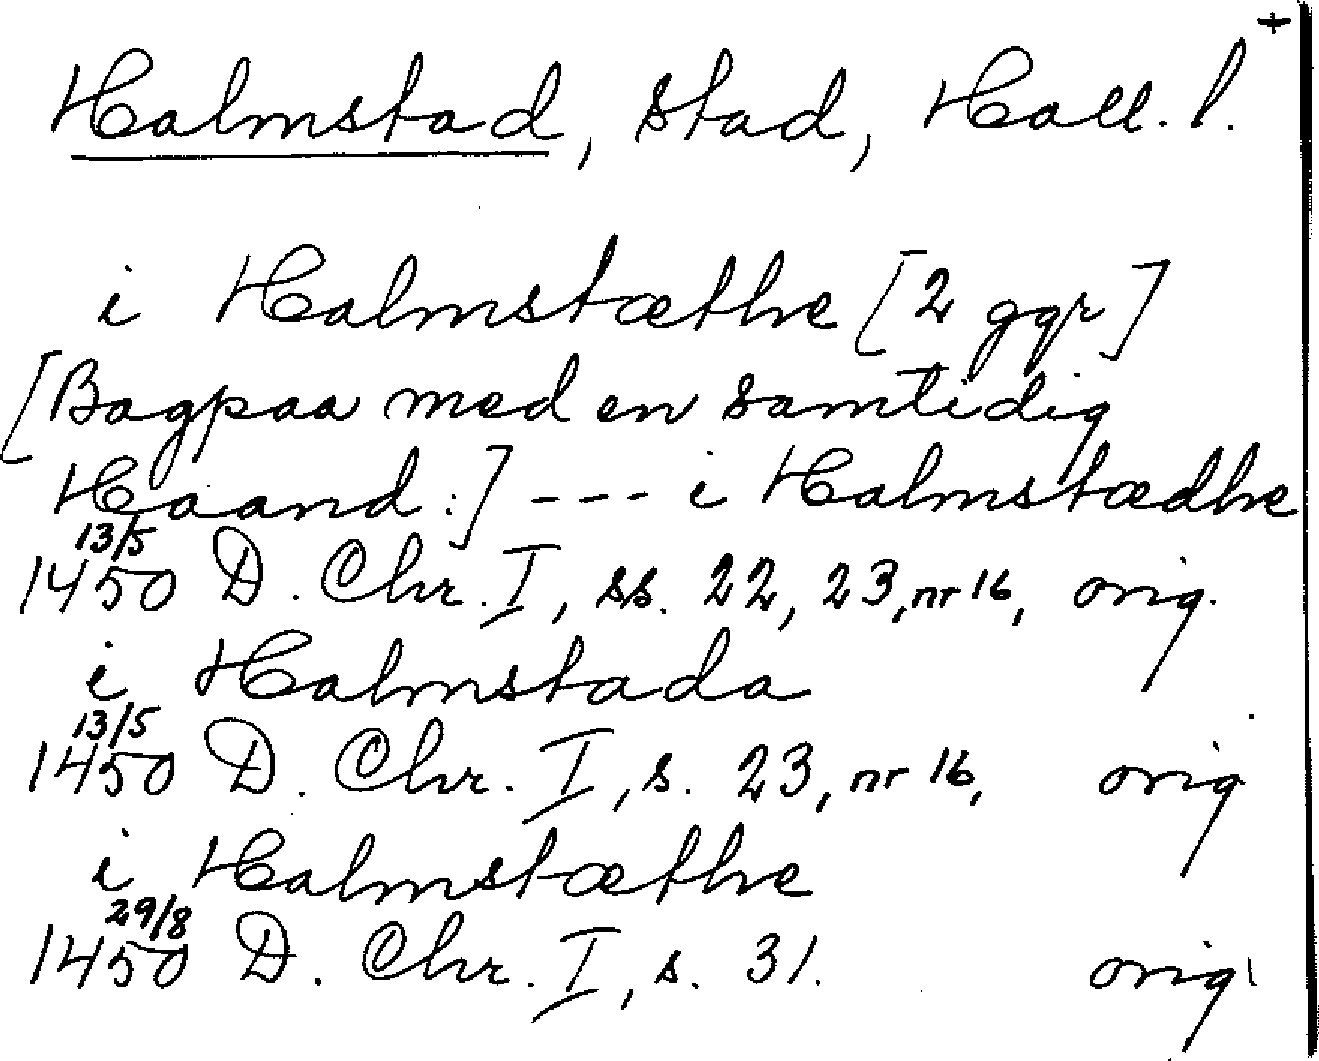 +
Halmstad, stad, Hall. l.
i Halmstæthe [2 ggr]
[Bagpaa med en samtidig
Haand:] --- i Halmstædhe
13/5
1450 D. Chr. I, ss. 22, 23, nr 16, orig.
i Halmstada
13/5
1450 D. Chr. I, s. 23, nr 16, orig
i Halmstæthe
29/8
1450 D. Chr. I, s. 31. orig.